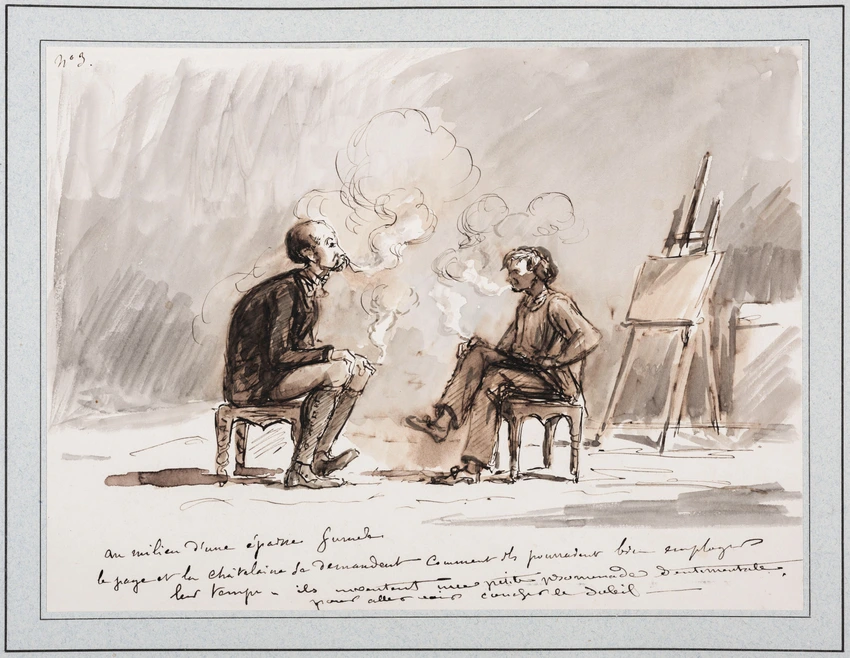 N° 3.
au milieu d'une épaisse fumée
le page et la châtelaine se demandent comment ils pourraient bien employer
leur temps - ils inventent une petite promenade sentimentale
pour aller voir coucher le soleil